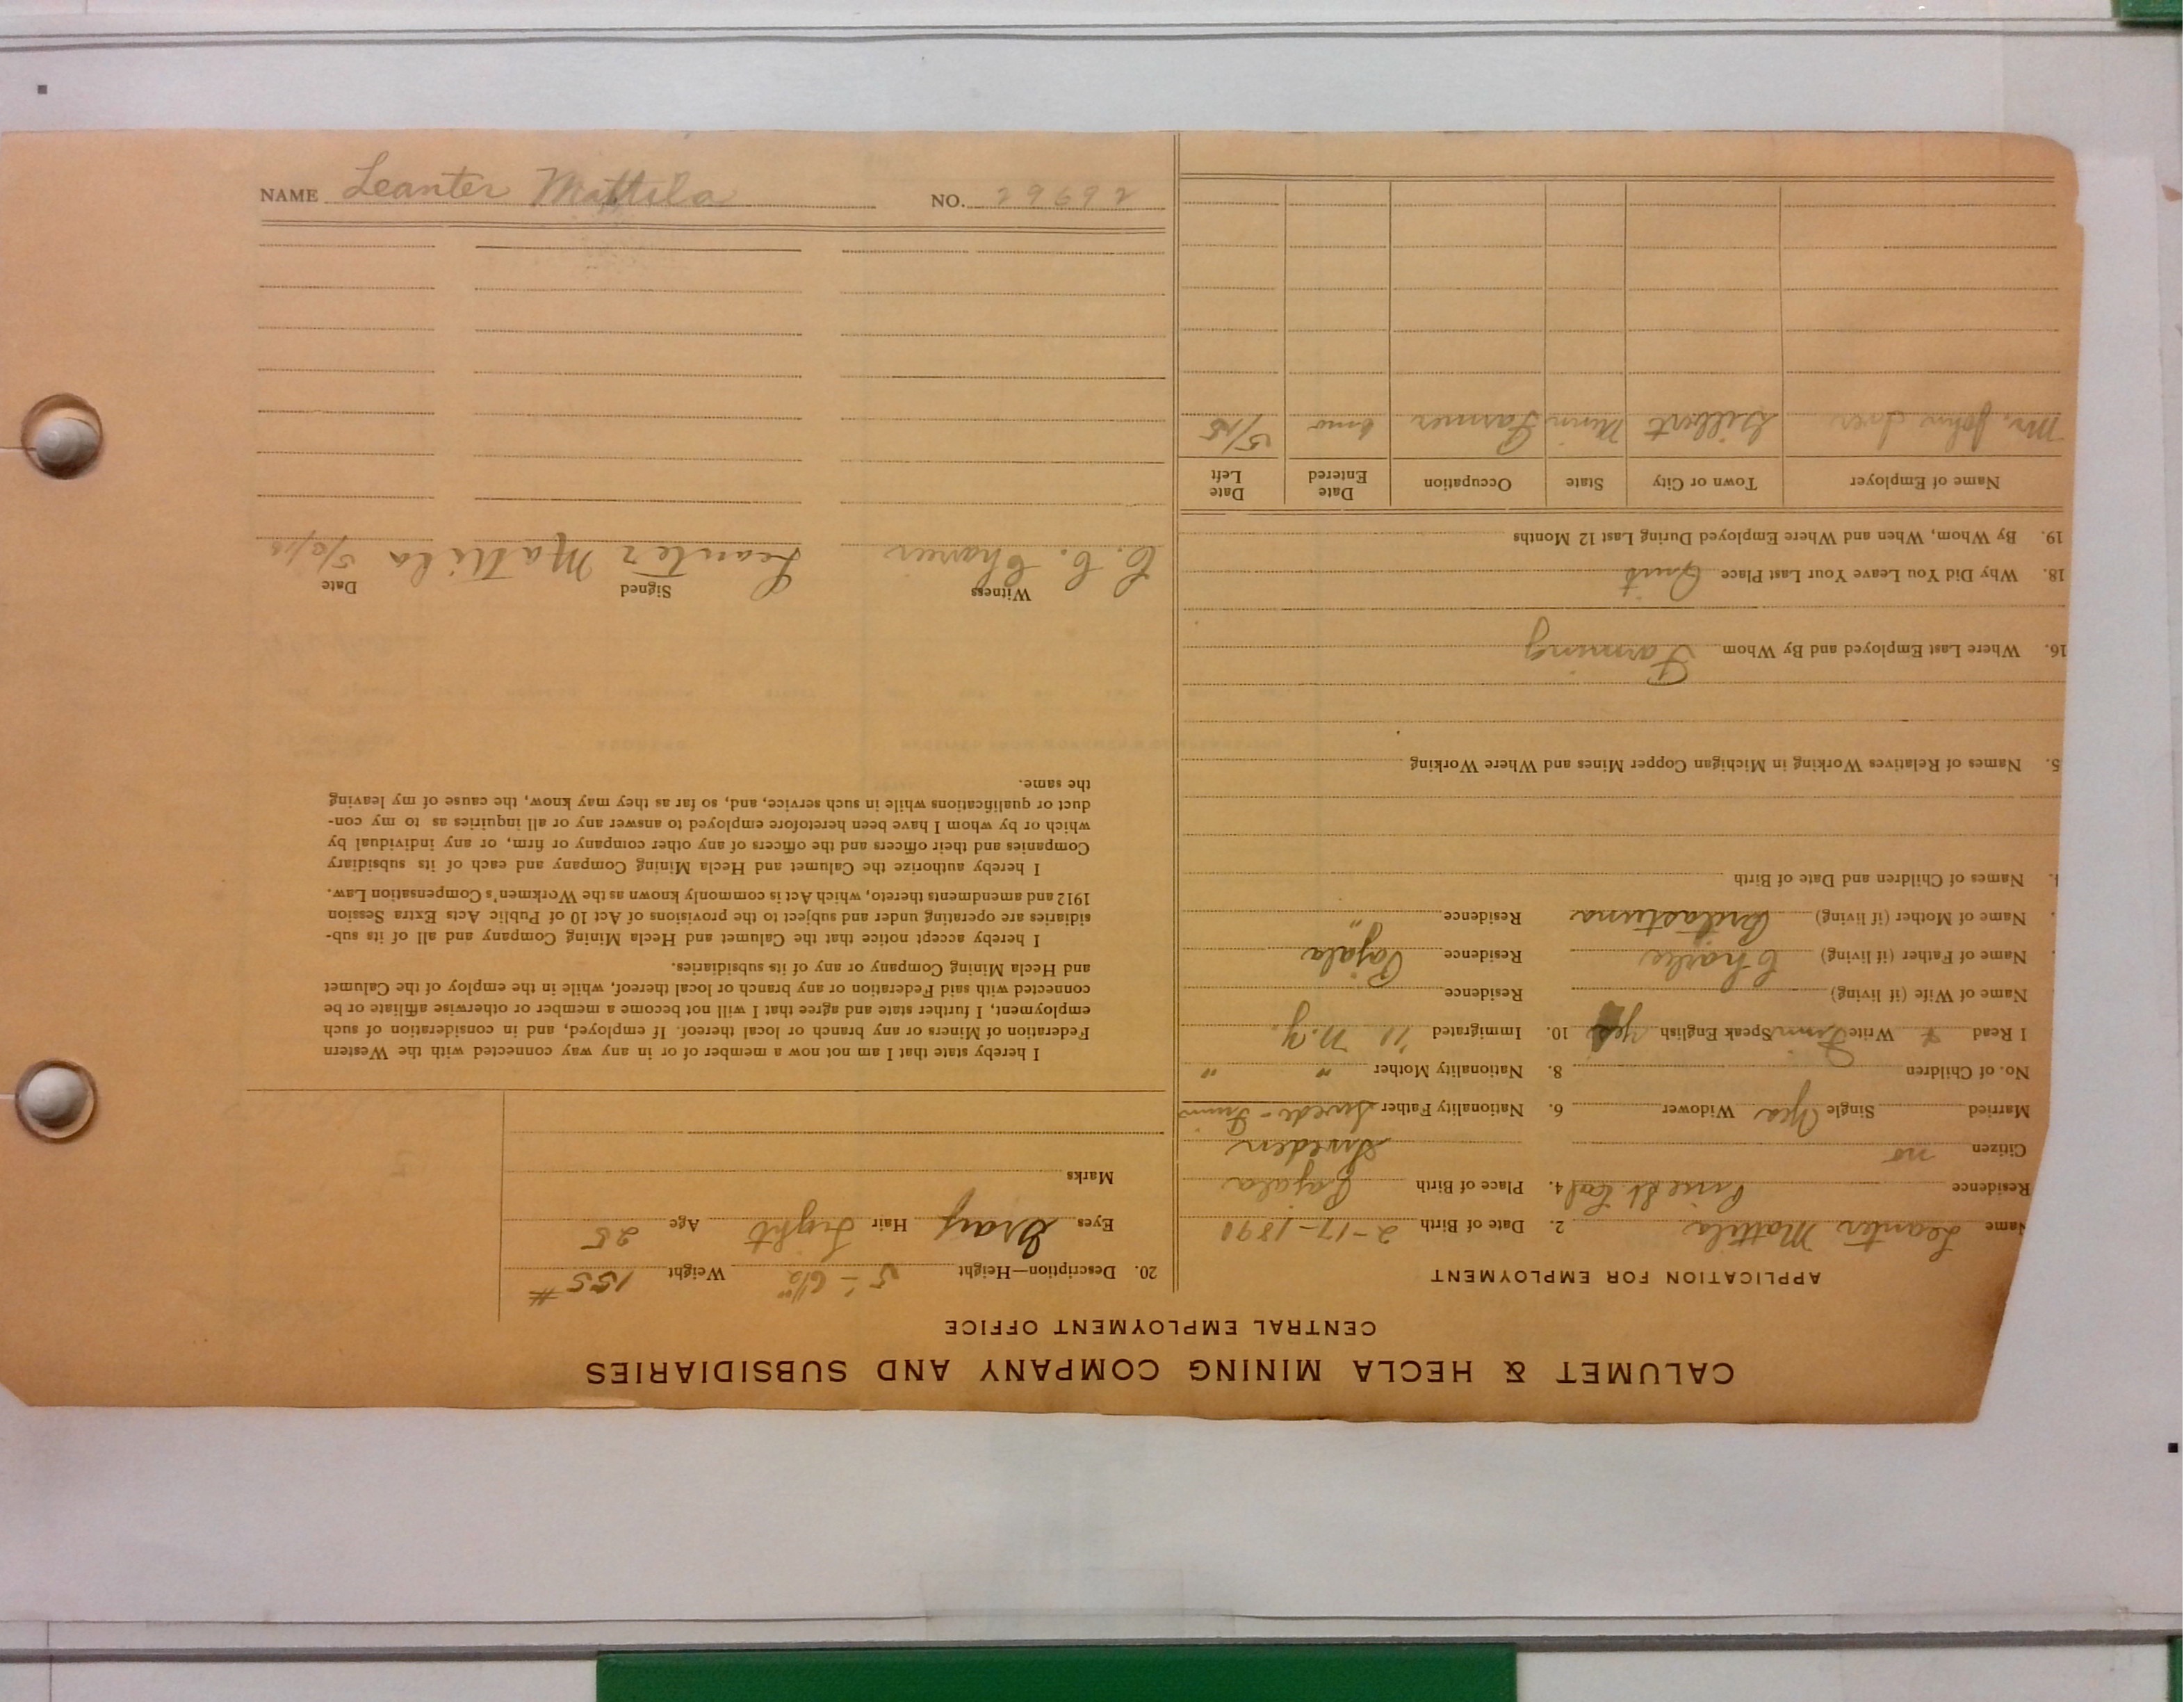 CALUMET & HECLA MINING COMPANY AND SUBSIDIARIES
CENTRAL EMPLOYMENT OFFICE
APPLICATION FOR EMPLOYMENT
Name Leanter Mattila 2. Date of Birth 2-17-1890
Residence Pine St 4. Place of Birth Pajala
Citizen no Sweden
Married Single Yea Widower 6. Nationality Father Swede-Finn
No. of Children 8. Nationality Mother " "
I Read + Write Finn Speak English yes 10. Immigrated '11 N.Y.
Name of Wife (if living) Residence
Name of Father (if living) Charlie Residence Pajala
Name of Mother (if living) Residence "
Names of Children and Date of Birth
5. Names of Relatives Working in Michigan Copper Mines and Where Working
16. Where Last Employed and By Whom Farming
18. Why Did You Leave Your Last Place Quit
19. By Whom, When and Where Employed During Last 12 Months
Name of Employer Town or City State Occupation Date Entered Date Left
Mr. John Gilbert Minn Farmer 6 mo 5/15
20. Description—Height 5'-6½" Weight 155#
Eyes Gray Hair Light Age 25
Marks
I hereby state that I am not now a member of or in any way connected with the Western
Federation of Miners or any branch or local thereof. If employed, and in consideration of such
employment, I further state and agree that I will not become a member or otherwise affiliate or be
connected with said Federation or any branch or local thereof, while in the employ of the Calumet
and Hecla Mining Company or any of its subsidiaries.
I hereby accept notice that the Calumet and Hecla Mining Company and all of its sub-
sidiaries are operating under and subject to the provisions of Act 10 of Public Acts Extra Session
1912 and amendments thereto, which Act is commonly known as the Workmen's Compensation Law.
I hereby authorize the Calumet and Hecla Mining Company and each of its subsidiary
Companies and their officers and the officers of any other company or firm, or any individual by
which or by whom I have been heretofore employed to answer any or all inquiries as to my con-
duct or qualifications while in such service, and, so far as they may know, the cause of my leaving
the same.
Witness Signed Date
C. C. Leanter Mattila
NAME Leanter Mattila NO. 29692